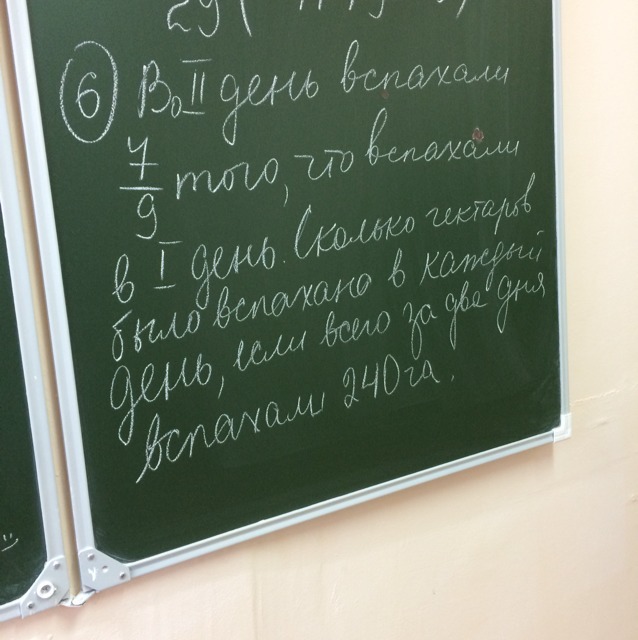 6 Во II день вспахали
7/9 того, что вспахали
в I день. Сколько гектаров
было вспахано в каждый
день, если всего за две дня
вспахали 240 га.